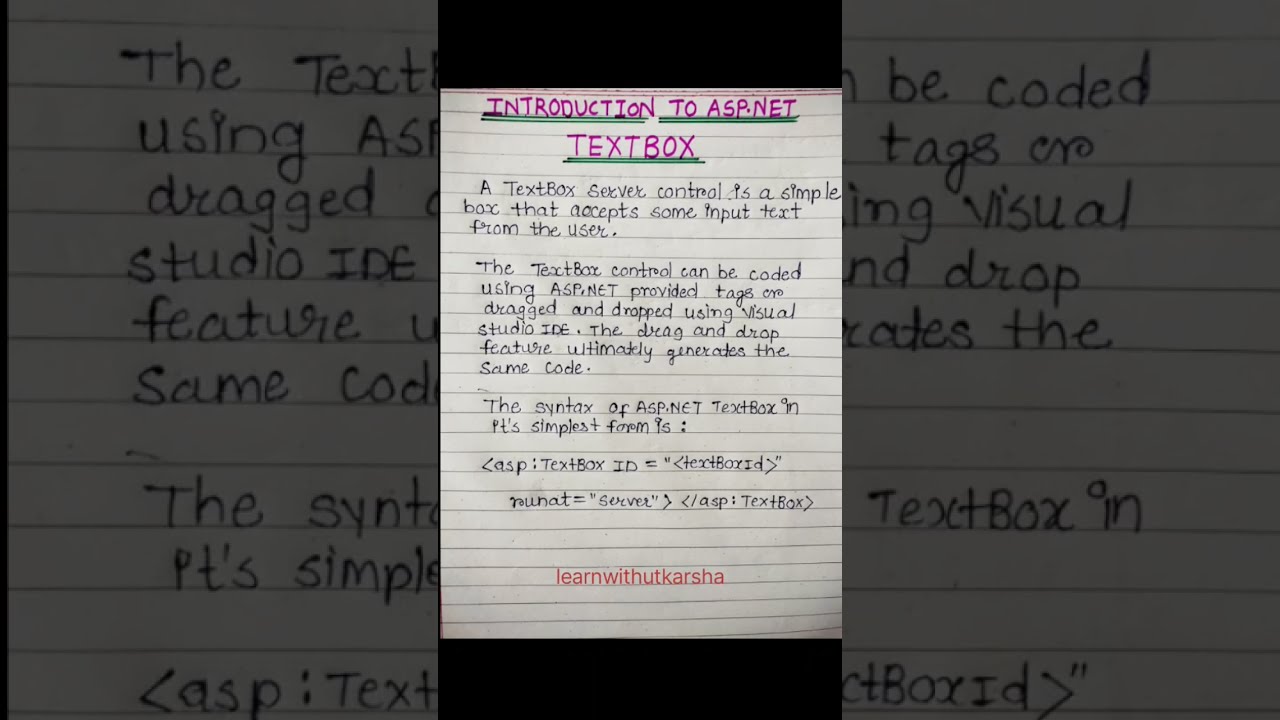 INTRODUCTION TO ASP.NET
TEXTBOX
A TextBox server control is a simple
box that accepts some input text
from the user.
The TextBox control can be coded
using ASP.NET provided tags or
dragged and dropped using Visual
studio IDE. The drag and drop
feature ultimately generates the
same code.
The syntax of ASP.NET TextBox in
it's simplest form is :
<asp:TextBox ID = "<textBoxId>"
runat="server"> </asp:TextBox>
learnwithutkarsha